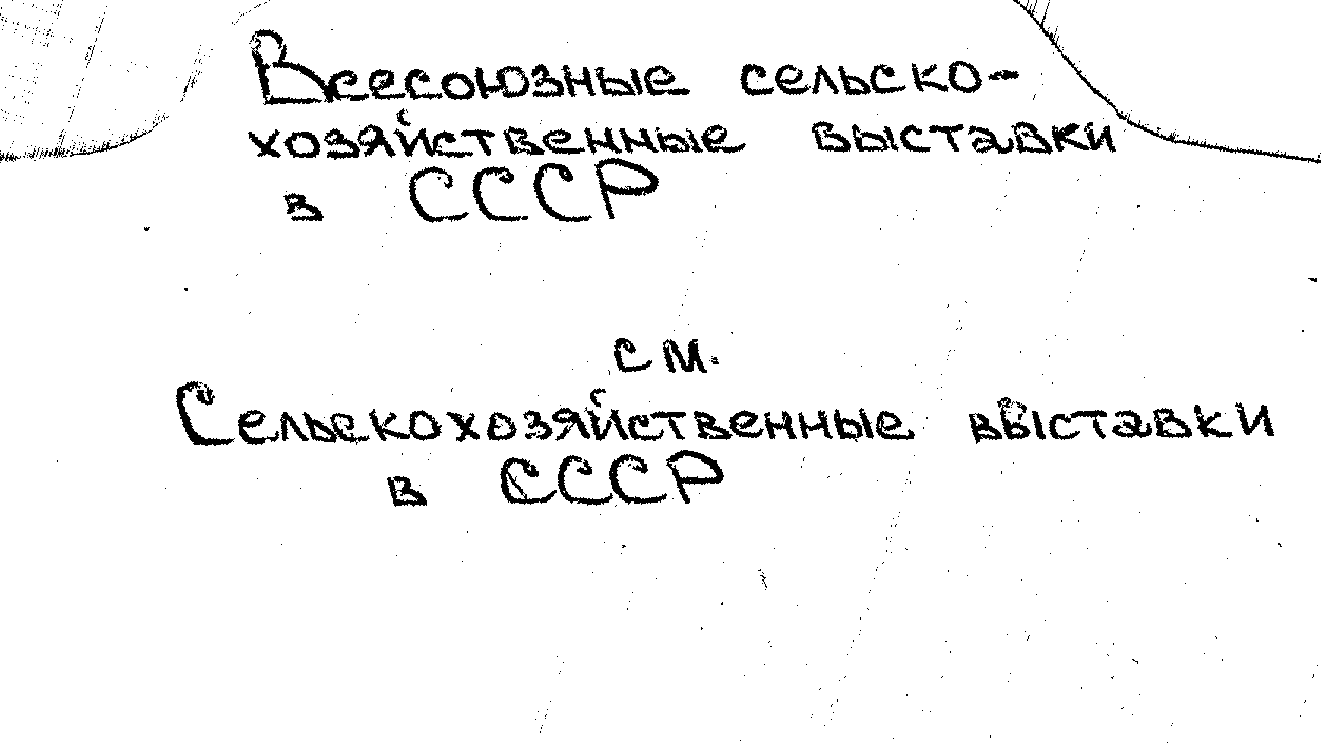 Всесоюзные сельско-
хозяйственные выставки
в СССР
см.
Сельскохозяйственные выставки
в СССР